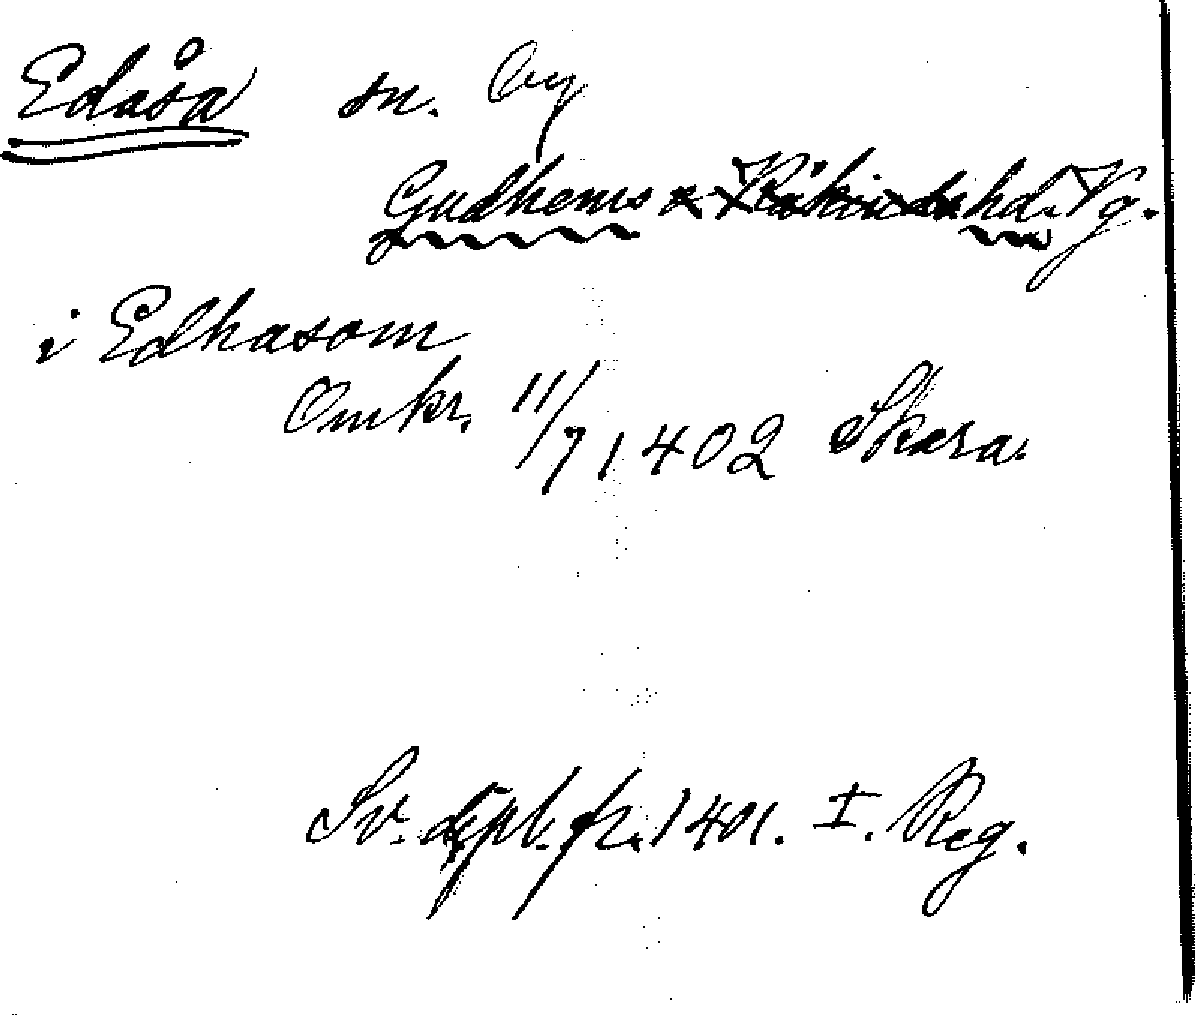 Edåsa sn. by
Gudhems x Kåkinds hd. Vg.
i Edhasom
Omkr. 11/7 1402 Skara.
Sv. dipl. fr. 1401. I. Reg.